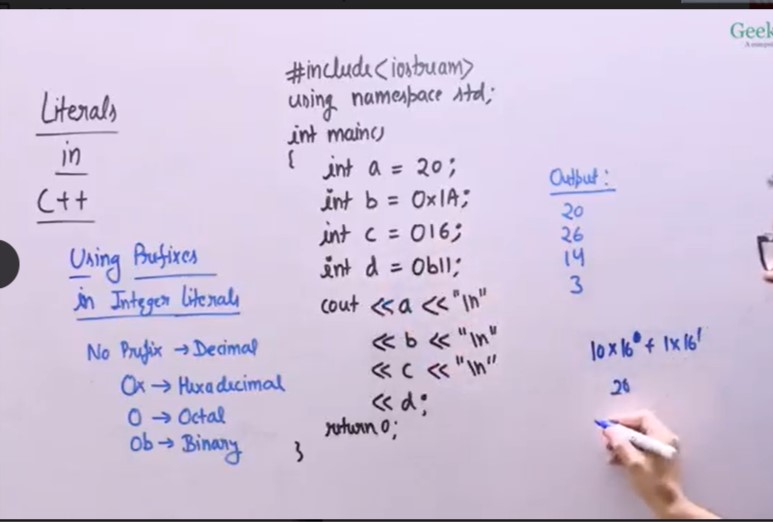 Geek
Literals
in
C++
Using Prefixes
in Integer Literals
No Prefix → Decimal
0x → Hexadecimal
0 → Octal
0b → Binary
#include<iostream>
using namespace std;
int main()
{
int a = 20;
int b = 0x1A;
int c = 016;
int d = 0b11;
cout <<a <<"\n"
<< b << "\n"
<< c << "\n"
<< d;
return 0;
}
Output:
20
26
14
3
10 x 16⁰ + 1 x 16¹
26